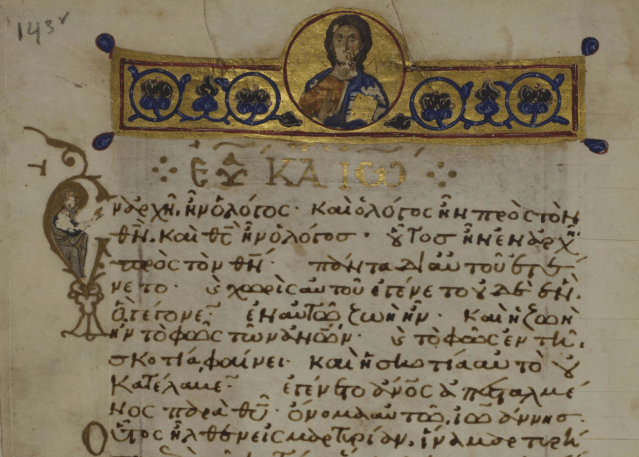 143v
ΕΥ ΚΑ ΙΩ
Εν ἀρχῆ ἦν ὁ λόγος· καὶ ὁ λόγος ἦν πρὸς τὸν
θν̅· καὶ θς̅ ἦν ὁ λόγος· οὗτος ἦν ἐν ἀρχῆ
πρὸς τὸν θν̅· πάντα δι αὐτοῦ ἐγέ
νετο· καὶ χωρὶς αὐτοῦ ἐγένετο οὐδὲ ἕν·
ὃ γέγονε ἐν αὐτῶ ζωὴ ἦν· καὶ ἡ ζωὴ
ἦν τὸ φῶς τῶν ἀνῶν· καὶ τὸ φῶς ἐν τῆ
σκοτία φαίνει· καὶ ἡ σκοτία αὐτὸ οὐ
κατέλαβε ἐγένετο ἀνος ἀπεσταλμέ
νος παρὰ θυ̅· ὄνομα αὐτῶ ἰωάννης·
Οὗτος ἦλθεν εἰς μαρτυρίαν, ἵνα μαρτυρή